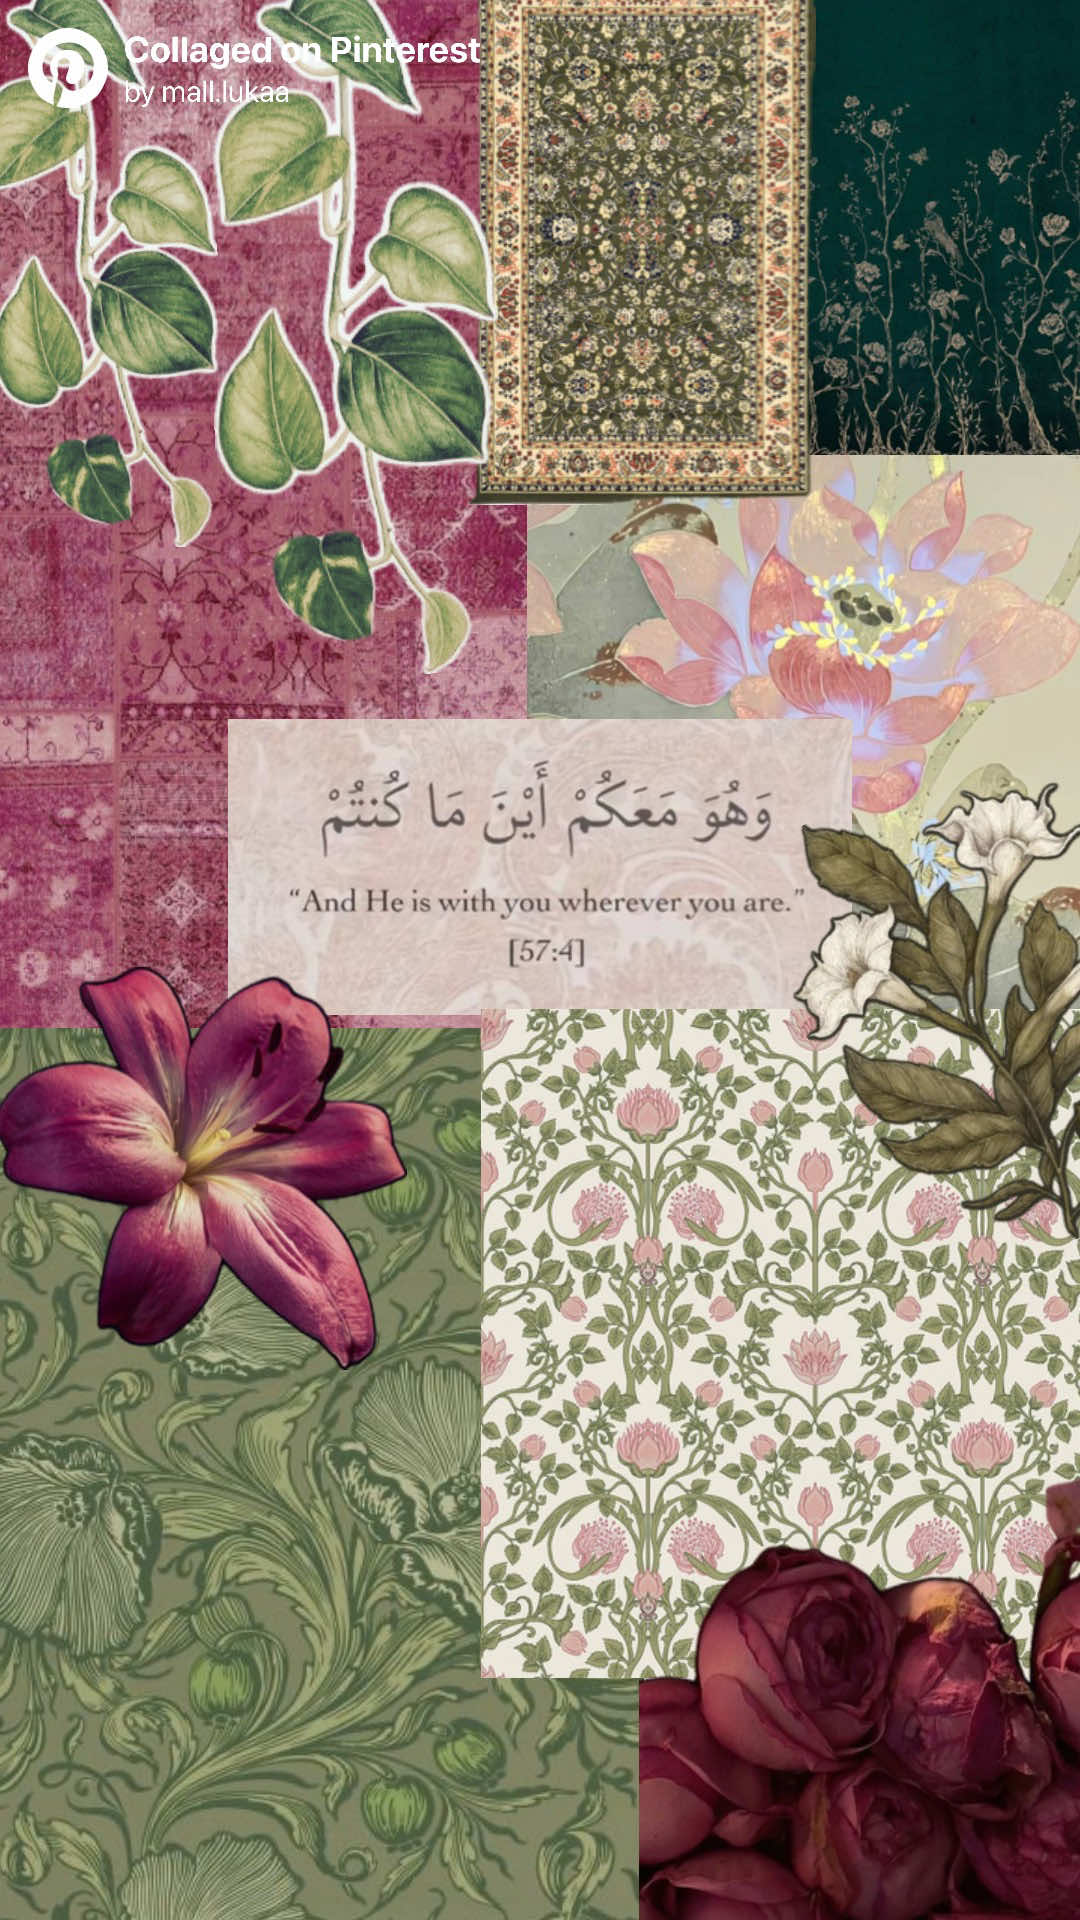 Collaged on Pinterest
by mall.lukaa
وَهُوَ مَعَكُمْ أَيْنَ مَا كُنتُمْ
“And He is with you wherever you are.”
[57:4]